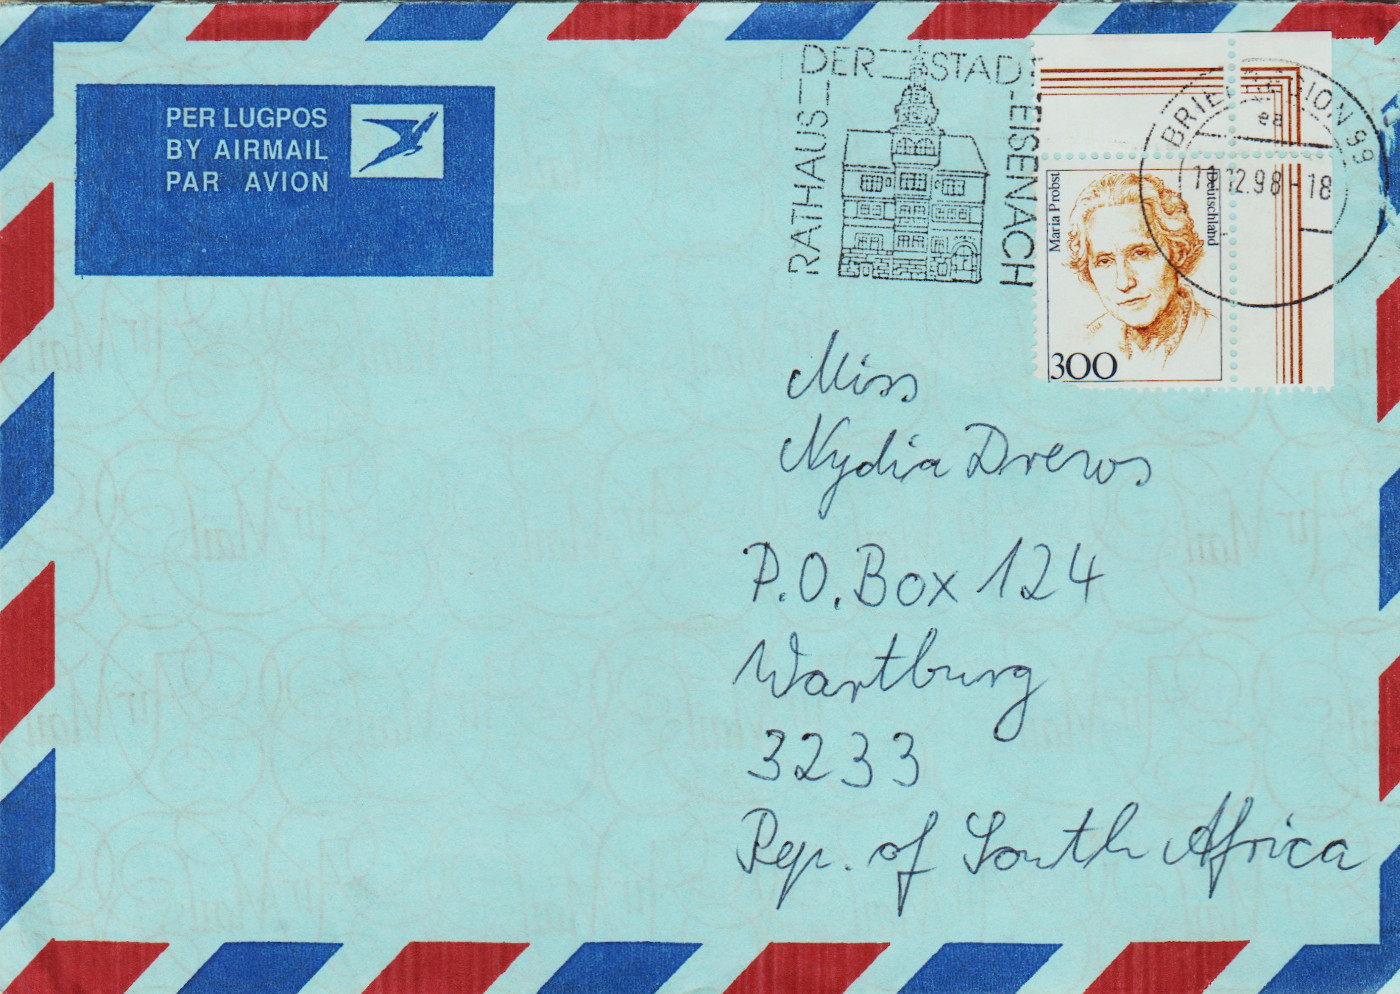 PER LUGPOS
BY AIRMAIL
PAR AVION
RATHAUS DER STADT EISENACH
BRIEFREGION 99
ea
12.98-18
Maria Probst
Deutschland
300
Miss
Nydia Drews
P.O. Box 124
Wartburg
3233
Rep. of South Africa